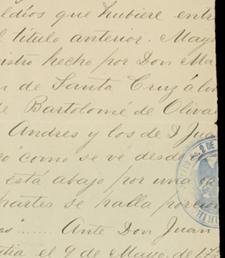 ldíos que hubiere entr
l título anterior. Mayo
istro hecho por Don Ma
n de Santa Cruz á lo
de Bartolomé de Olivar
Andres y los de D Jua
como se ve desde
está abajo por una
partes se halla porcion
Ante Don Juan
dia el 9 de Mayo de 17